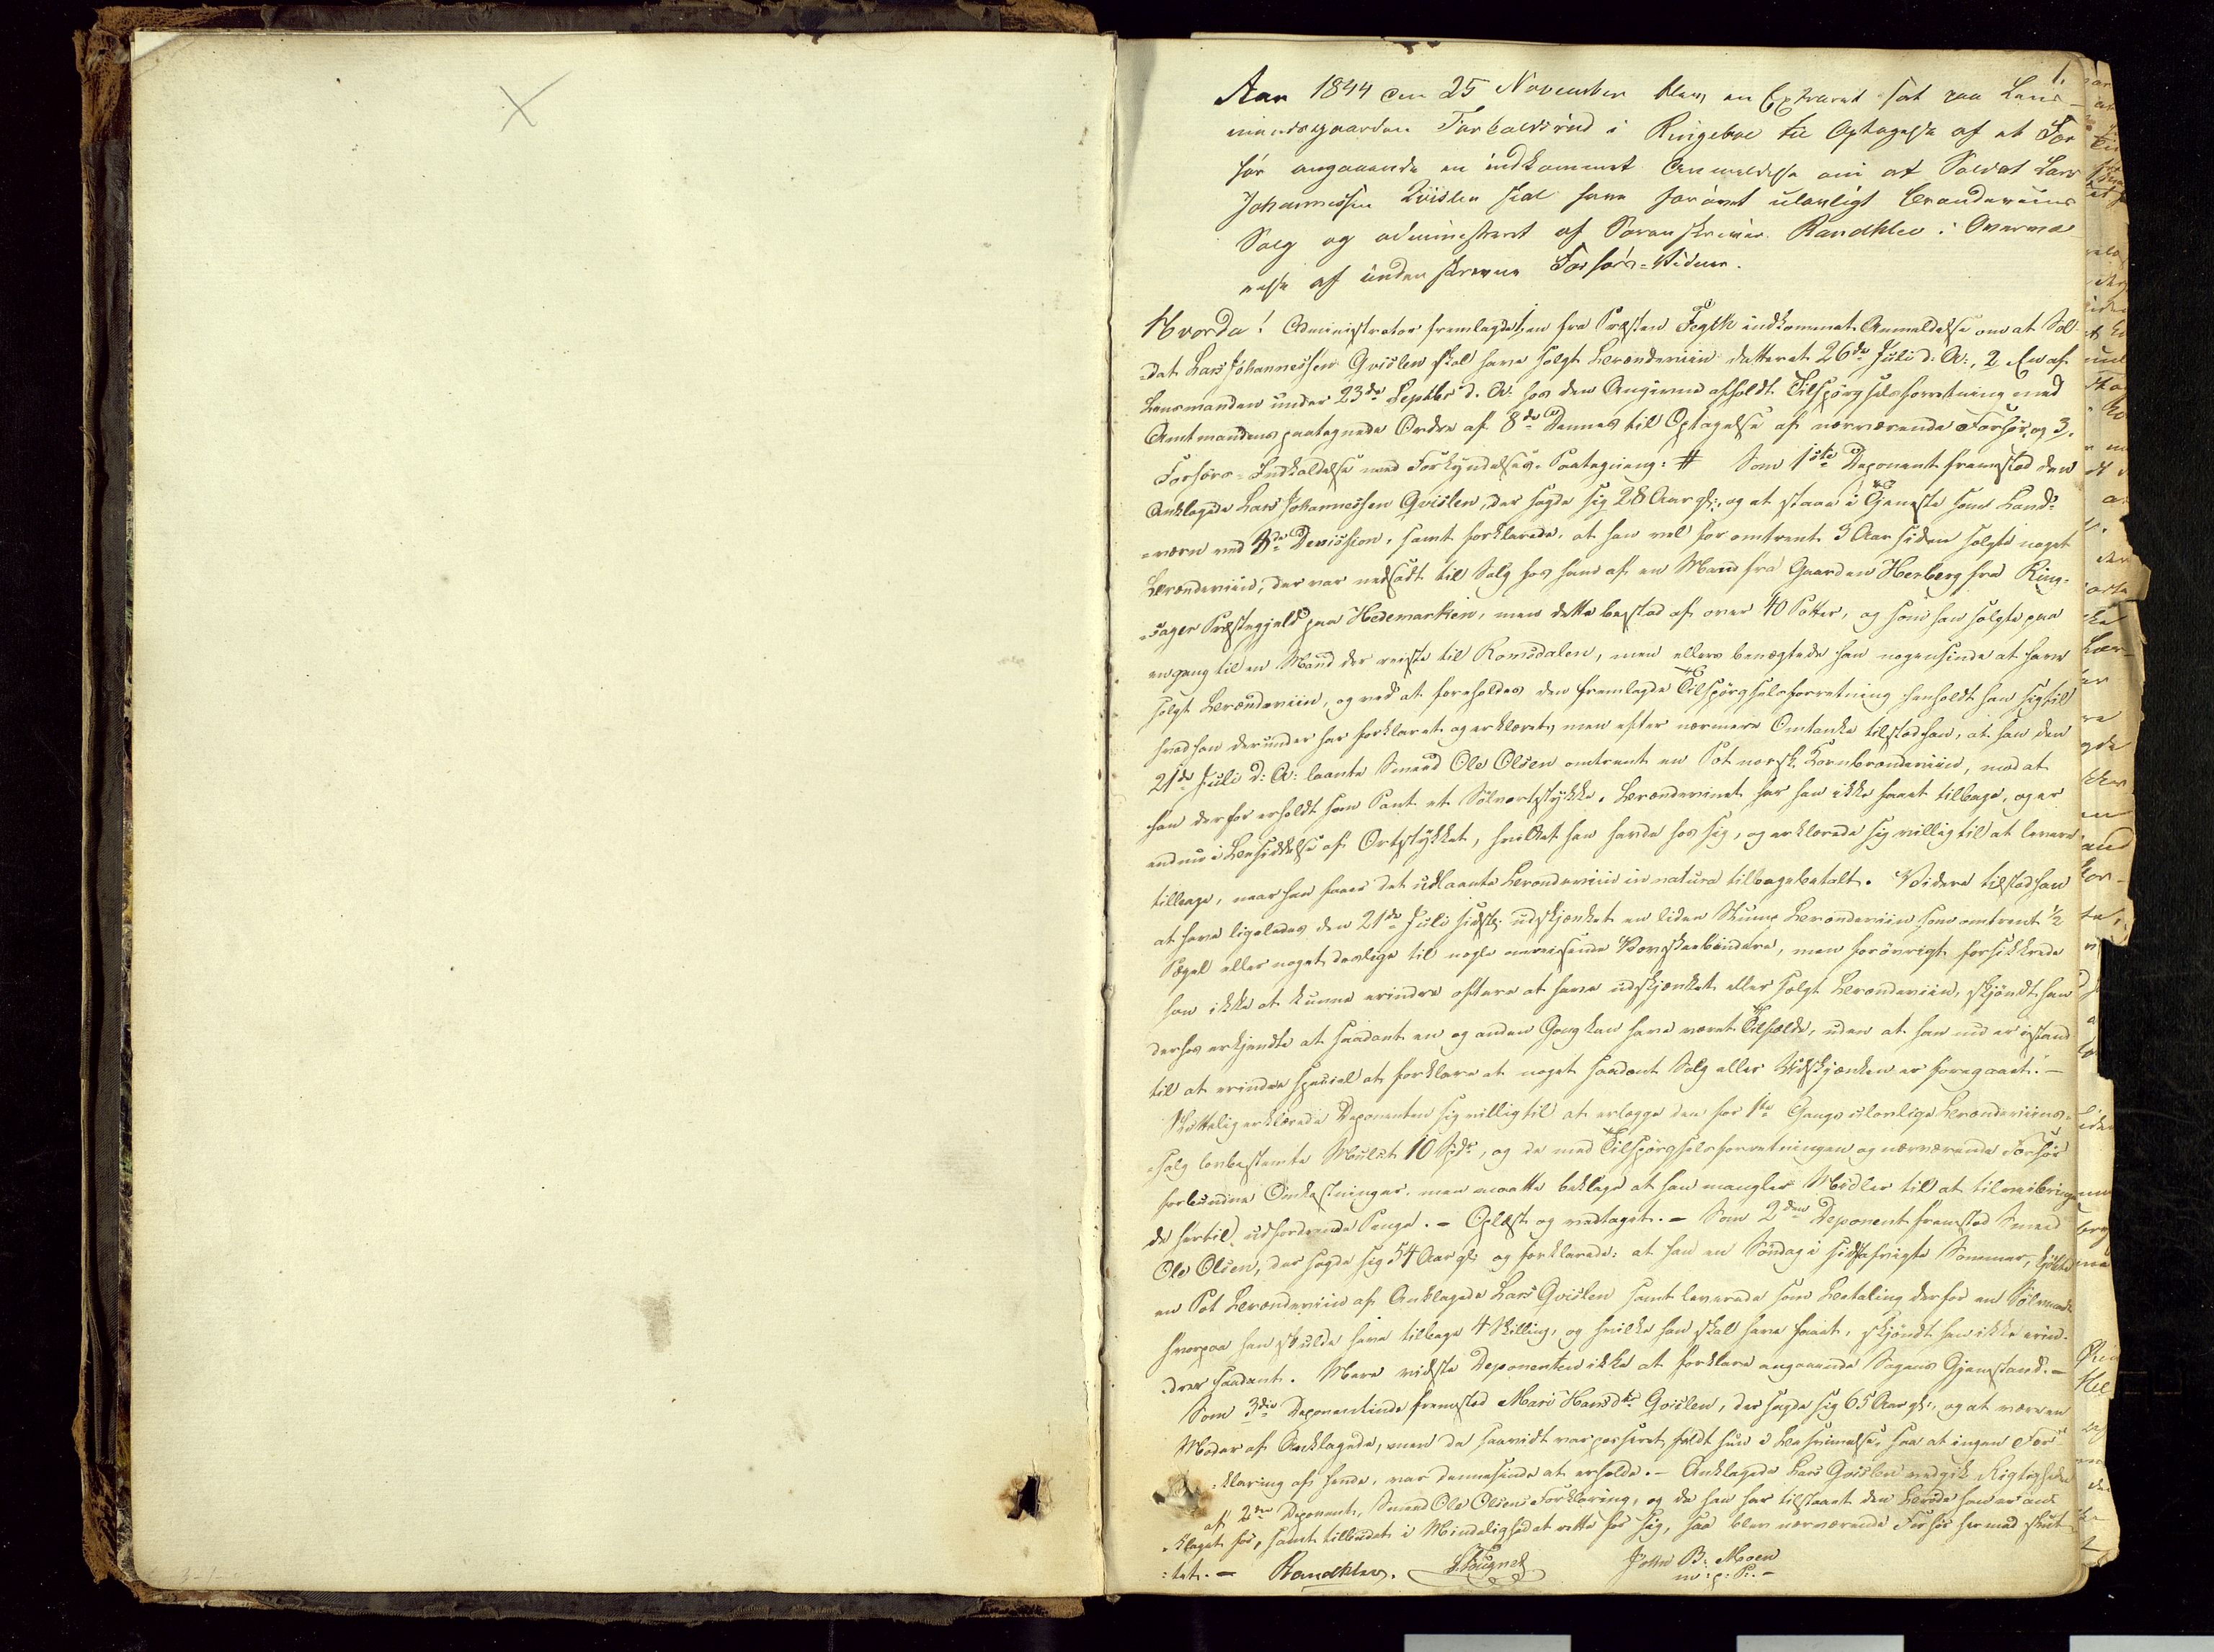 1.
Aar 1844 den 25 November blev en Extraret sat paa Lens-
mandsgaarden Forbaerud i Ringeboe til Optagelse af et For
hør angaaende en indkommet Anmeldelse om at Soldat Lars
Johannessen Qvislen skal have forøvet ulovligt Brændeviins
Salg og administreret af Sorenskriver Randklev i Overvæ-
relse af underskrevne Forhørs-Vidner.
Hvorda! Administrator fremlagde 1, en fra Præsten Fogth indkommet Anmeldelse om at Sol-
dat Lars Johannessen Qvislen skal have solgt Brændeviin datteret 26de Juli d. A:, 2 En af
Lensmanden under 23de Septbr d. A: hos den Angivne afholdt Tilspørgselsforretning med
Amtmandens paategnede Ordre af 8de Dennes til Optagelse af nærværende Forhør, og 3,
Forhørs-Indkaldelse med Forkyndelses-Paategning: # Som 1ste Deponent fremstod den
Anklagede Lars Johannessen Qvislen, der sagde sig 28 Aar gl:, og at staae i Tjeneste som Land-
=værn ved Devission, samt forklarede, at han vel for omtrent 3 Aar siden solgte noget
Brændeviin, der var nedsadt til Salg hos ham af en Mand fra Gaarden Herberg fra Ring-
sager Præstegjeld paa Hedemarken, men dette bestod af over 40 Potter, og som han solgte paa
en gang til en Mand der reiste til Romsdalen, men ellers benægtede han nogensinde at have
solgt Brændeviin, og ved at foreholdes den fremlagde Tilspørgselsforretning henholdt han sig til
hvad han derunder har forklaret og erklæret, men efter nærmere Omtanke tilstod han, at han den
21de Juli d: A: laante Smed Ole Olsen omtrent en Pot norsk Kornbrændeviin, mod at
han derfor erholdt som Pant et Sølvortstykke. Brændevinet har han ikke faaet tilbage, og er
endnu i Besiddelse af Ortstykket, hvilket han havde hos sig, og erklærede sig villig til at levere
tilbage, naar han faaer det udlaante Brændeviin in natura tilbagebetalt. Videre tilstod han
at have ligeledes den 21de Juli sidstl: udskjænket en liden Skump Brændeviin som omtrent 1/2
Pægel eller noget deslige til nogle omreisende Vovskarbindere, men forøvrigt forsikkrede
han ikke at kunne erindre oftere at have udskjænket eller solgt Brændeviin, skjøndt han
derhos erkjendte at saadant en og anden Gang kan have været Tilfælde, uden at han nu er istand
til at erindre special at forklare at noget saadant Salg eller Udskjænken er foregaaet. -
Sluttelig erklærede Deponenten sig villig til at erlægge den for 1ste Gangs ulovlige Brændeviins-
=salg lovbestemte Mulct 10 Spd:, og de med Tilspørgselsforretningen og nærværende Forhør
forbundne Omkostninger, men maatte beklage at han mangler Midler til at tilveiebringe
de hertil udfordrende Penge. - Oplæst og vedtaget. - Som 2den Deponent fremstod Smed
Ole Olsen, der sagde sig 54 Aar gl: og forklarede: at han en Søndag i sidstafvigte Sommer, kjøbte
en Pot Brændeviin af Anklagede Lars Qvislen samt leverede som Betaling derfor en Sølvmark
hvorpaa han skulde have tilbage 4 Skilling, og hvilke han skal have faaet, skjøndt han ikke erin-
drer saadant. Mere vidste Deponenten ikke at forklare angaaende Sagens Gjenstand. -
Som 3die Deponentinde fremstod Mari Hansdtr Qvislen, der sagde sig 65 Aar gl:, og at være en
Moder af Anklagede, men da saavidt var passeret, faldt hun i Besvimelse, saa at ingen For-
=klaring af hende, var dennesinde at erholde. - Anklagede Lars Qvislen vedgik Rigtigheden
af 2den Deponent, Smed Ole Olsens Forklaring, og da han har tilstaaet den Brøde han er an-
klaget for, samt tilbudet i Mindelighed at rette for sig, saa blev nærværende Forhør hermed slut
=tet. - Randklev. John B: Moen
m: p: P: -